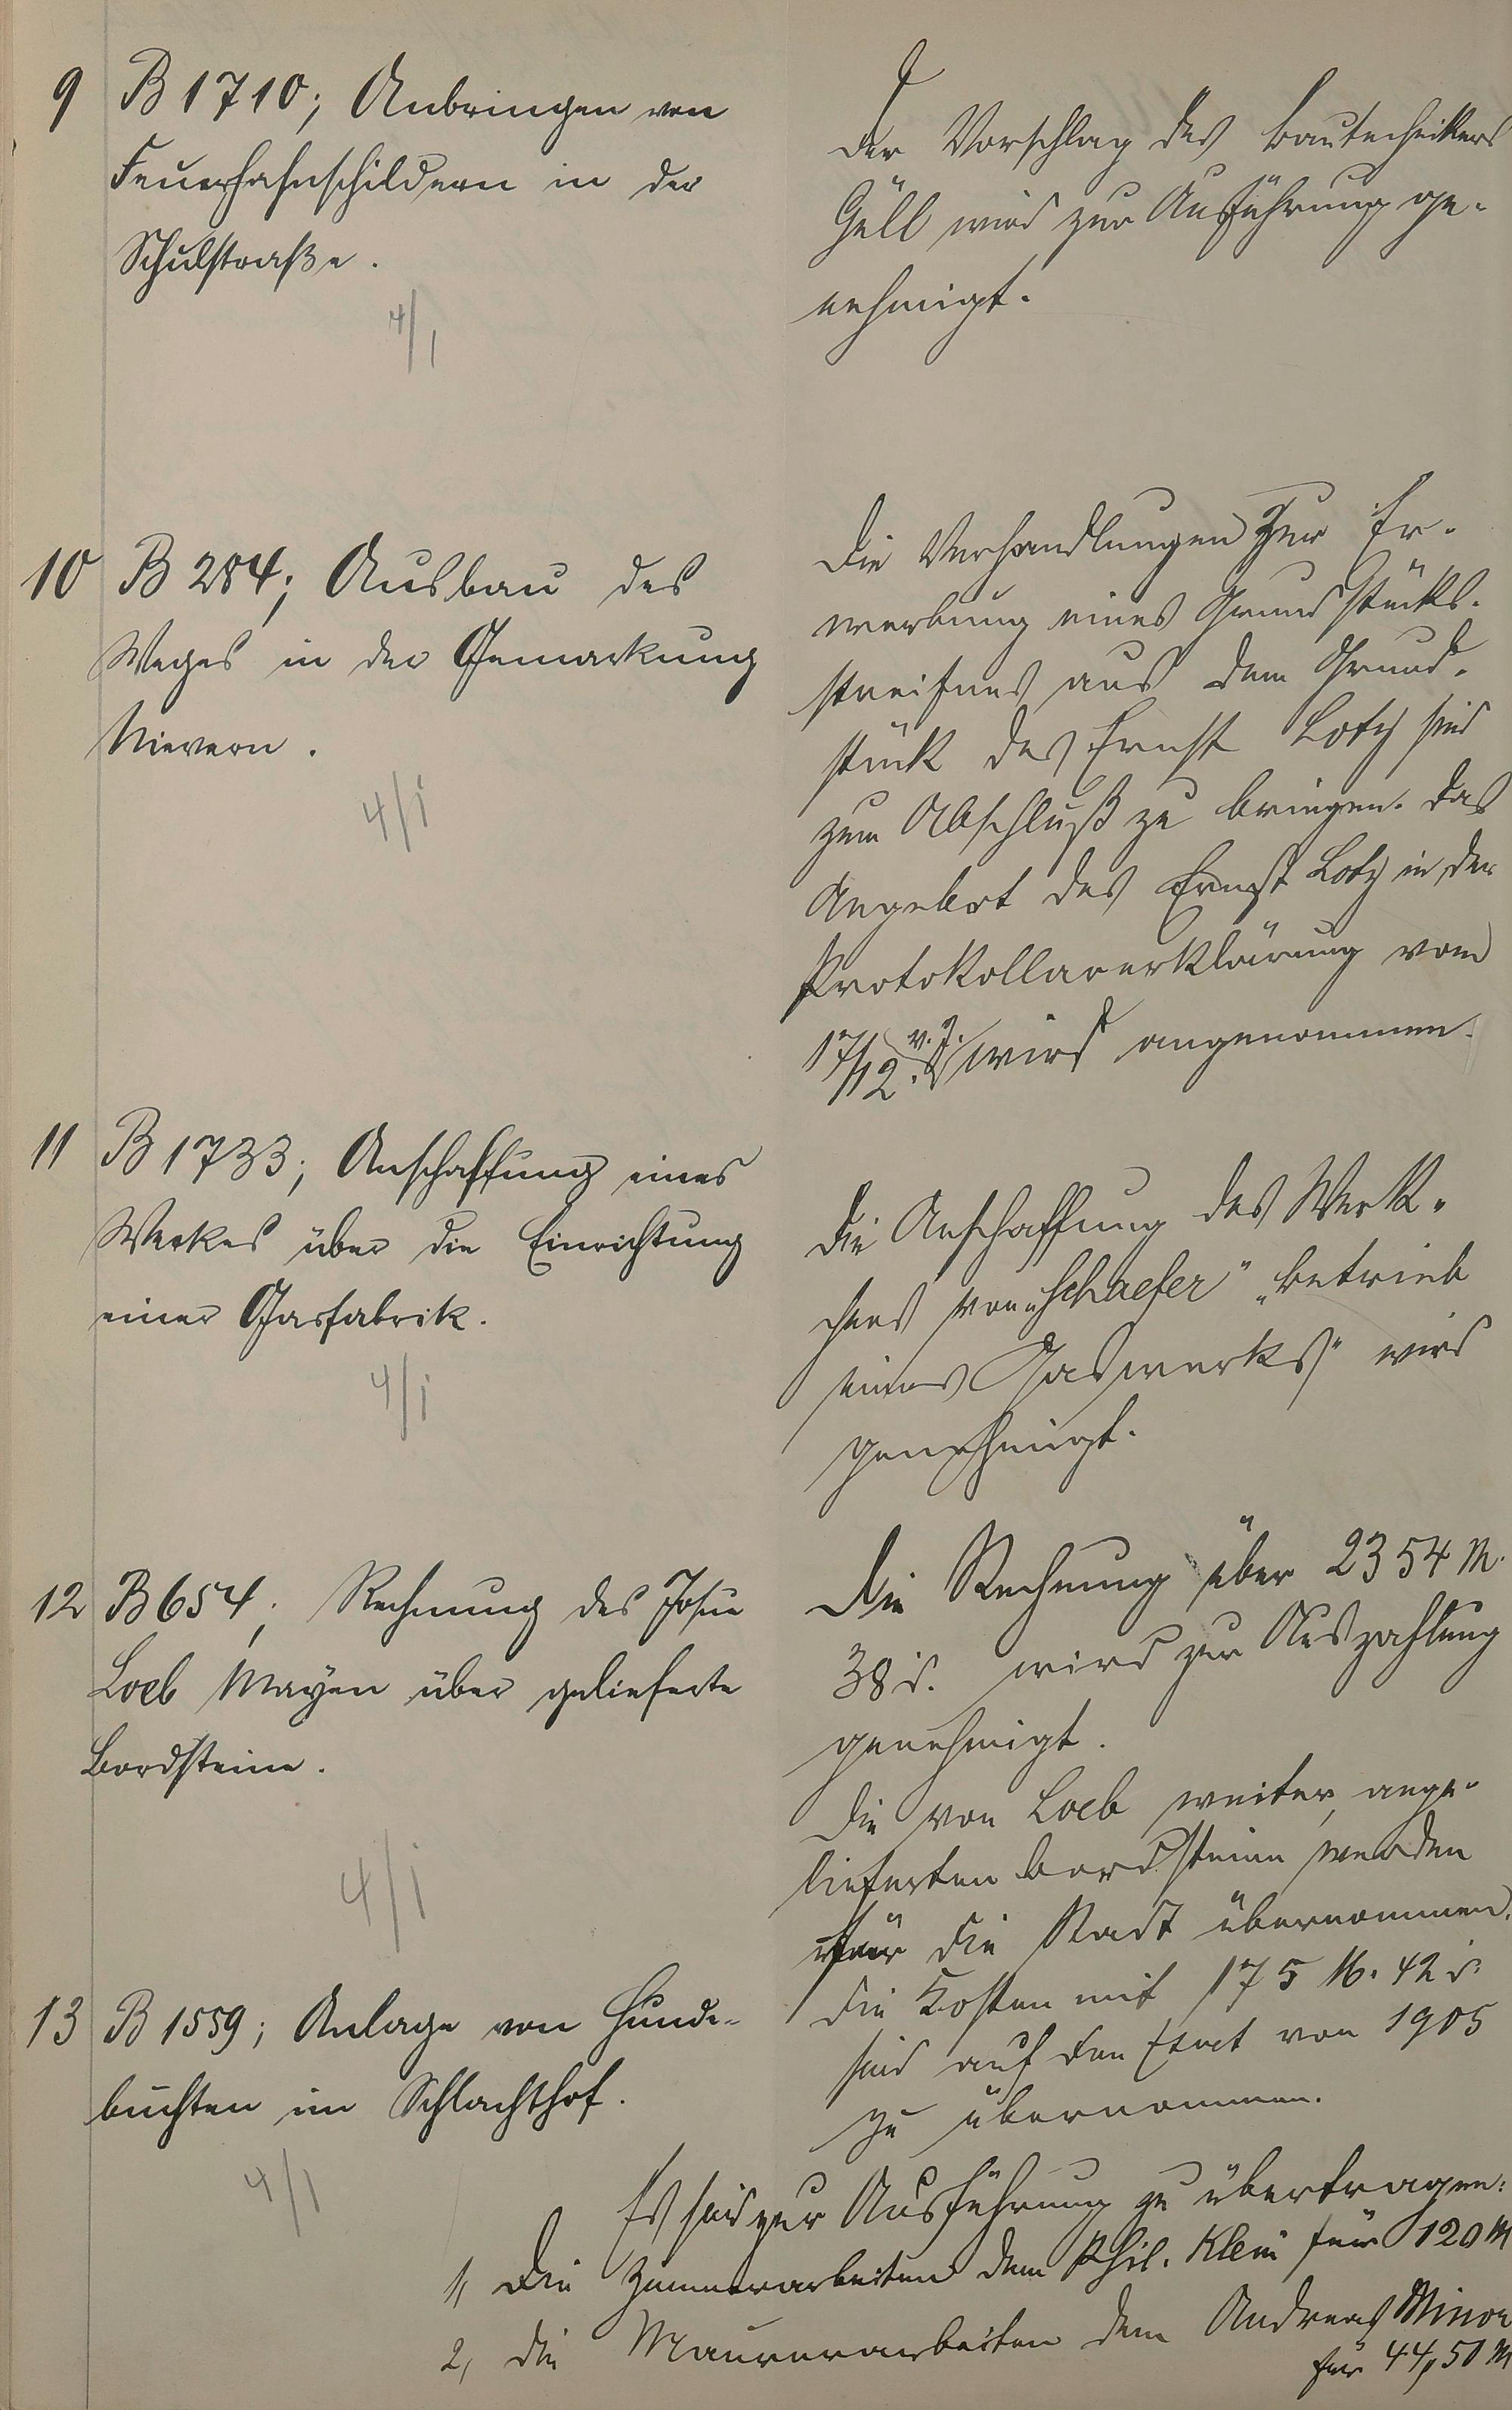 9 B 1710; Anbringen von
Feuerhahnschildern in der
Schulstraße.
4/1
Der Vorschlag des Bautechnikers
Güll wird zur Ausführung ge-
nehmigt.
10 B 284; Ausbau des
Weges in der Gemarkung
Nievern.
4/1
Die Verhandlungen zur Er-
werbung eines Grundstücks-
streifens aus dem Grund-
stück des Ernst Lotz sind
zum Abschluß zu bringen. Das
Angebot des Ernst Lotz in der
Protokollarerklärung vom
17/12. v. J. wird angenommen.
11 B 1733; Anschaffung eines
Werkes über die Einrichtung
einer Gasfabrik.
4/1
Die Anschaffung des Werk-
chens von "Schaefer" „Betrieb
eines Gaswerks" wird
genehmigt.
12 B 654; Rechnung des Josue
Loeb Mayen über gelieferte
Bordsteine.
4/1
Die Rechnung über 2354 M.
38 d. wird zur Auszahlung
genehmigt.
Die von Loeb weiter ange-
lieferten Bordsteine werden
für die Stadt übernommen.
Die Kosten mit 175 M. 42 d.
sind auf den Etat von 1905
zu übernommen.
13 B 1559; Anlage von Hunde-
buchten im Schlachthof.
4/1
Es sind zur Ausführung zu übertragen:
1, Die Zimmerarbeiten dem Phil. Klein für 120 M
2, die Maurerarbeiten dem Andreas Minor
für 44,50 M